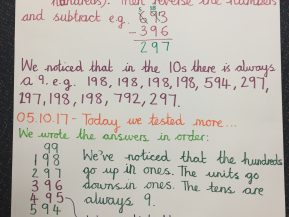 hundreds). Then reverse the numbers
and subtract e.g. 693
- 396
297
We noticed that in the 10s there is always
a 9. e.g. 198, 198, 198, 198, 594, 297,
297, 198, 198, 792, 297.
05.10.17 - Today we tested more...
We wrote the answers in order:
99
198
297
396
495
594
We've noticed that the hundreds
go up in ones. The units go
down in ones. The tens are
always 9.